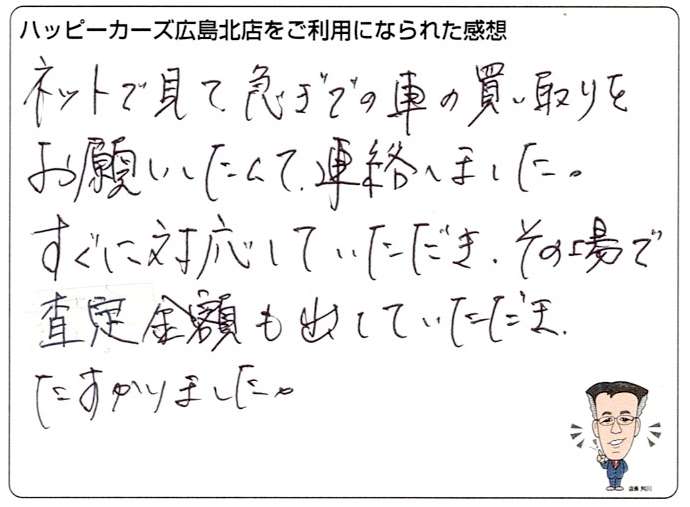 ハッピーカーズ広島北店をご利用になられた感想
ネットで見て急ぎでの車の買い取りを
お願いしたくて、連絡しました。
すぐに対応していただき、その場で
査定金額も出していただき、
たすかりました。